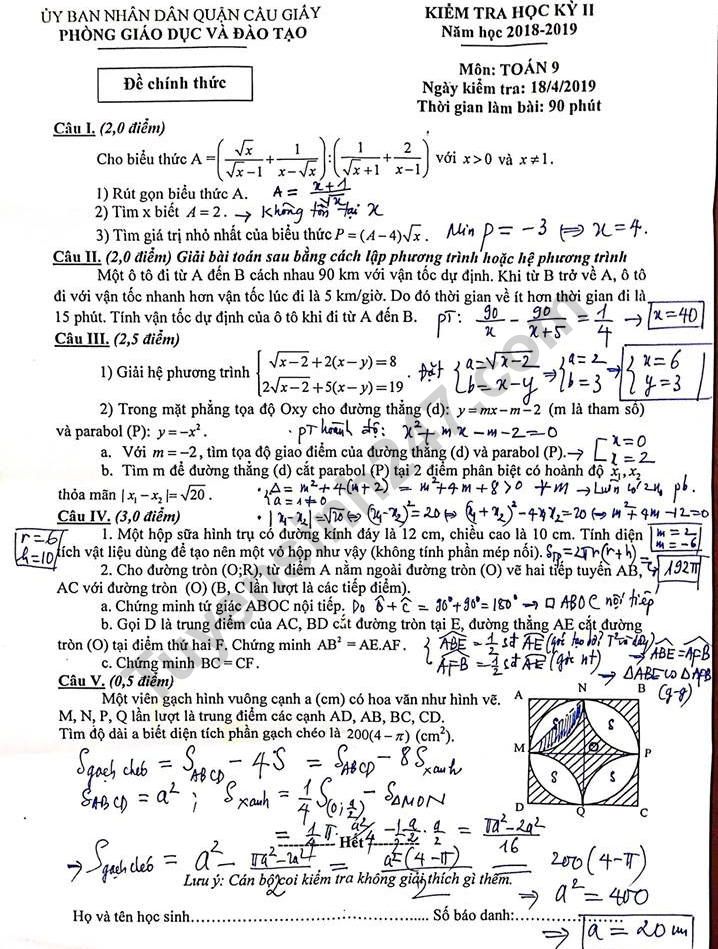 ỦY BAN NHÂN DÂN QUẬN CẦU GIẤY
PHÒNG GIÁO DỤC VÀ ĐÀO TẠO
KIỂM TRA HỌC KỲ II
Năm học 2018-2019
Đề chính thức
Môn: TOÁN 9
Ngày kiểm tra: 18/4/2019
Thời gian làm bài: 90 phút
Câu I. (2,0 điểm)
Cho biểu thức A = (√x/(√x-1) + 1/(x-√x)) : (1/(√x+1) + 2/(x-1)) với x > 0 và x ≠ 1.
1) Rút gọn biểu thức A. A = (x+1)/√x
2) Tìm x biết A = 2. → Không tồn tại x
3) Tìm giá trị nhỏ nhất của biểu thức P = (A-4)√x. Min P = -3 ⇔ x = 4.
Câu II. (2,0 điểm) Giải bài toán sau bằng cách lập phương trình hoặc hệ phương trình
Một ô tô đi từ A đến B cách nhau 90 km với vận tốc dự định. Khi từ B trở về A, ô tô
đi với vận tốc nhanh hơn vận tốc lúc đi là 5 km/giờ. Do đó thời gian về ít hơn thời gian đi là
15 phút. Tính vận tốc dự định của ô tô khi đi từ A đến B. PT: 90/x - 90/(x+5) = 1/4 → x = 40
Câu III. (2,5 điểm)
1) Giải hệ phương trình { √(x-2) + 2(x-y) = 8 ; 2√(x-2) + 5(x-y) = 19 . Đặt { a = √x-2 ; b = x-y → { a = 2 ; b = 3 → { x = 6 ; y = 3
2) Trong mặt phẳng tọa độ Oxy cho đường thẳng (d): y = mx - m - 2 (m là tham số)
và parabol (P): y = -x². · PT hoành độ: x² + mx - m - 2 = 0
a. Với m = -2, tìm tọa độ giao điểm của đường thẳng (d) và parabol (P). → [ x = 0 ; x = 2
b. Tìm m để đường thẳng (d) cắt parabol (P) tại 2 điểm phân biệt có hoành độ x₁, x₂
thỏa mãn |x₁ - x₂| = √20. · { Δ = m² + 4(m+2) = m² + 4m + 8 > 0 ∀m → Luôn có 2 n₀ pb.
a = 1 ≠ 0
· |x₁-x₂| = √20 ⇔ (x₁-x₂)² = 20 ⇔ (x₁+x₂)² - 4x₁x₂ = 20 ⇔ m² + 4m - 12 = 0
m = 2
m = -6
Câu IV. (3,0 điểm)
r = 6
h = 10
1. Một hộp sữa hình trụ có đường kính đáy là 12 cm, chiều cao là 10 cm. Tính diện
tích vật liệu dùng để tạo nên một vỏ hộp như vậy (không tính phần mép nối). Stp = 2πr(r+h)
= 192π
2. Cho đường tròn (O;R), từ điểm A nằm ngoài đường tròn (O) vẽ hai tiếp tuyến AB,
AC với đường tròn (O) (B, C lần lượt là các tiếp điểm).
a. Chứng minh tứ giác ABOC nội tiếp. Do B̂ + Ĉ = 90° + 90° = 180° → □ ABOC nội tiếp
b. Gọi D là trung điểm của AC, BD cắt đường tròn tại E, đường thẳng AE cắt đường
tròn (O) tại điểm thứ hai F. Chứng minh AB² = AE.AF. { ABE = 1/2 sđ AE (góc tạo bởi T² và dây) → ABE = AFB
AFB = 1/2 sđ AE (góc nt) → ΔABE ∽ ΔAFB
(g-g)
c. Chứng minh BC = CF.
Câu V. (0,5 điểm)
Một viên gạch hình vuông cạnh a (cm) có hoa văn như hình vẽ.
M, N, P, Q lần lượt là trung điểm các cạnh AD, AB, BC, CD.
Tìm độ dài a biết diện tích phần gạch chéo là 200(4-π) (cm²).
A N B
S S
M O P
S S
D Q C
Sgạch chéo = S_ABCD - 4S = S_ABCD - 8S_xanh
S_ABCD = a² ; S_xanh = 1/4 S_(O; a/2) - S_ΔMON
= 1/4 π · a²/4 - 1/2 · a/2 · a/2 = (πa² - 2a²)/16
---------- Hết ----------
→ Sgạch chéo = a² - (πa² - 2a²)/2 = a²(4-π)/2 = 200(4-π)
Lưu ý: Cán bộ coi kiểm tra không giải thích gì thêm.
⇒ a² = 400
Họ và tên học sinh……………………………………... Số báo danh:……………
⇒ a = 20 cm
Tuyensinh247.com